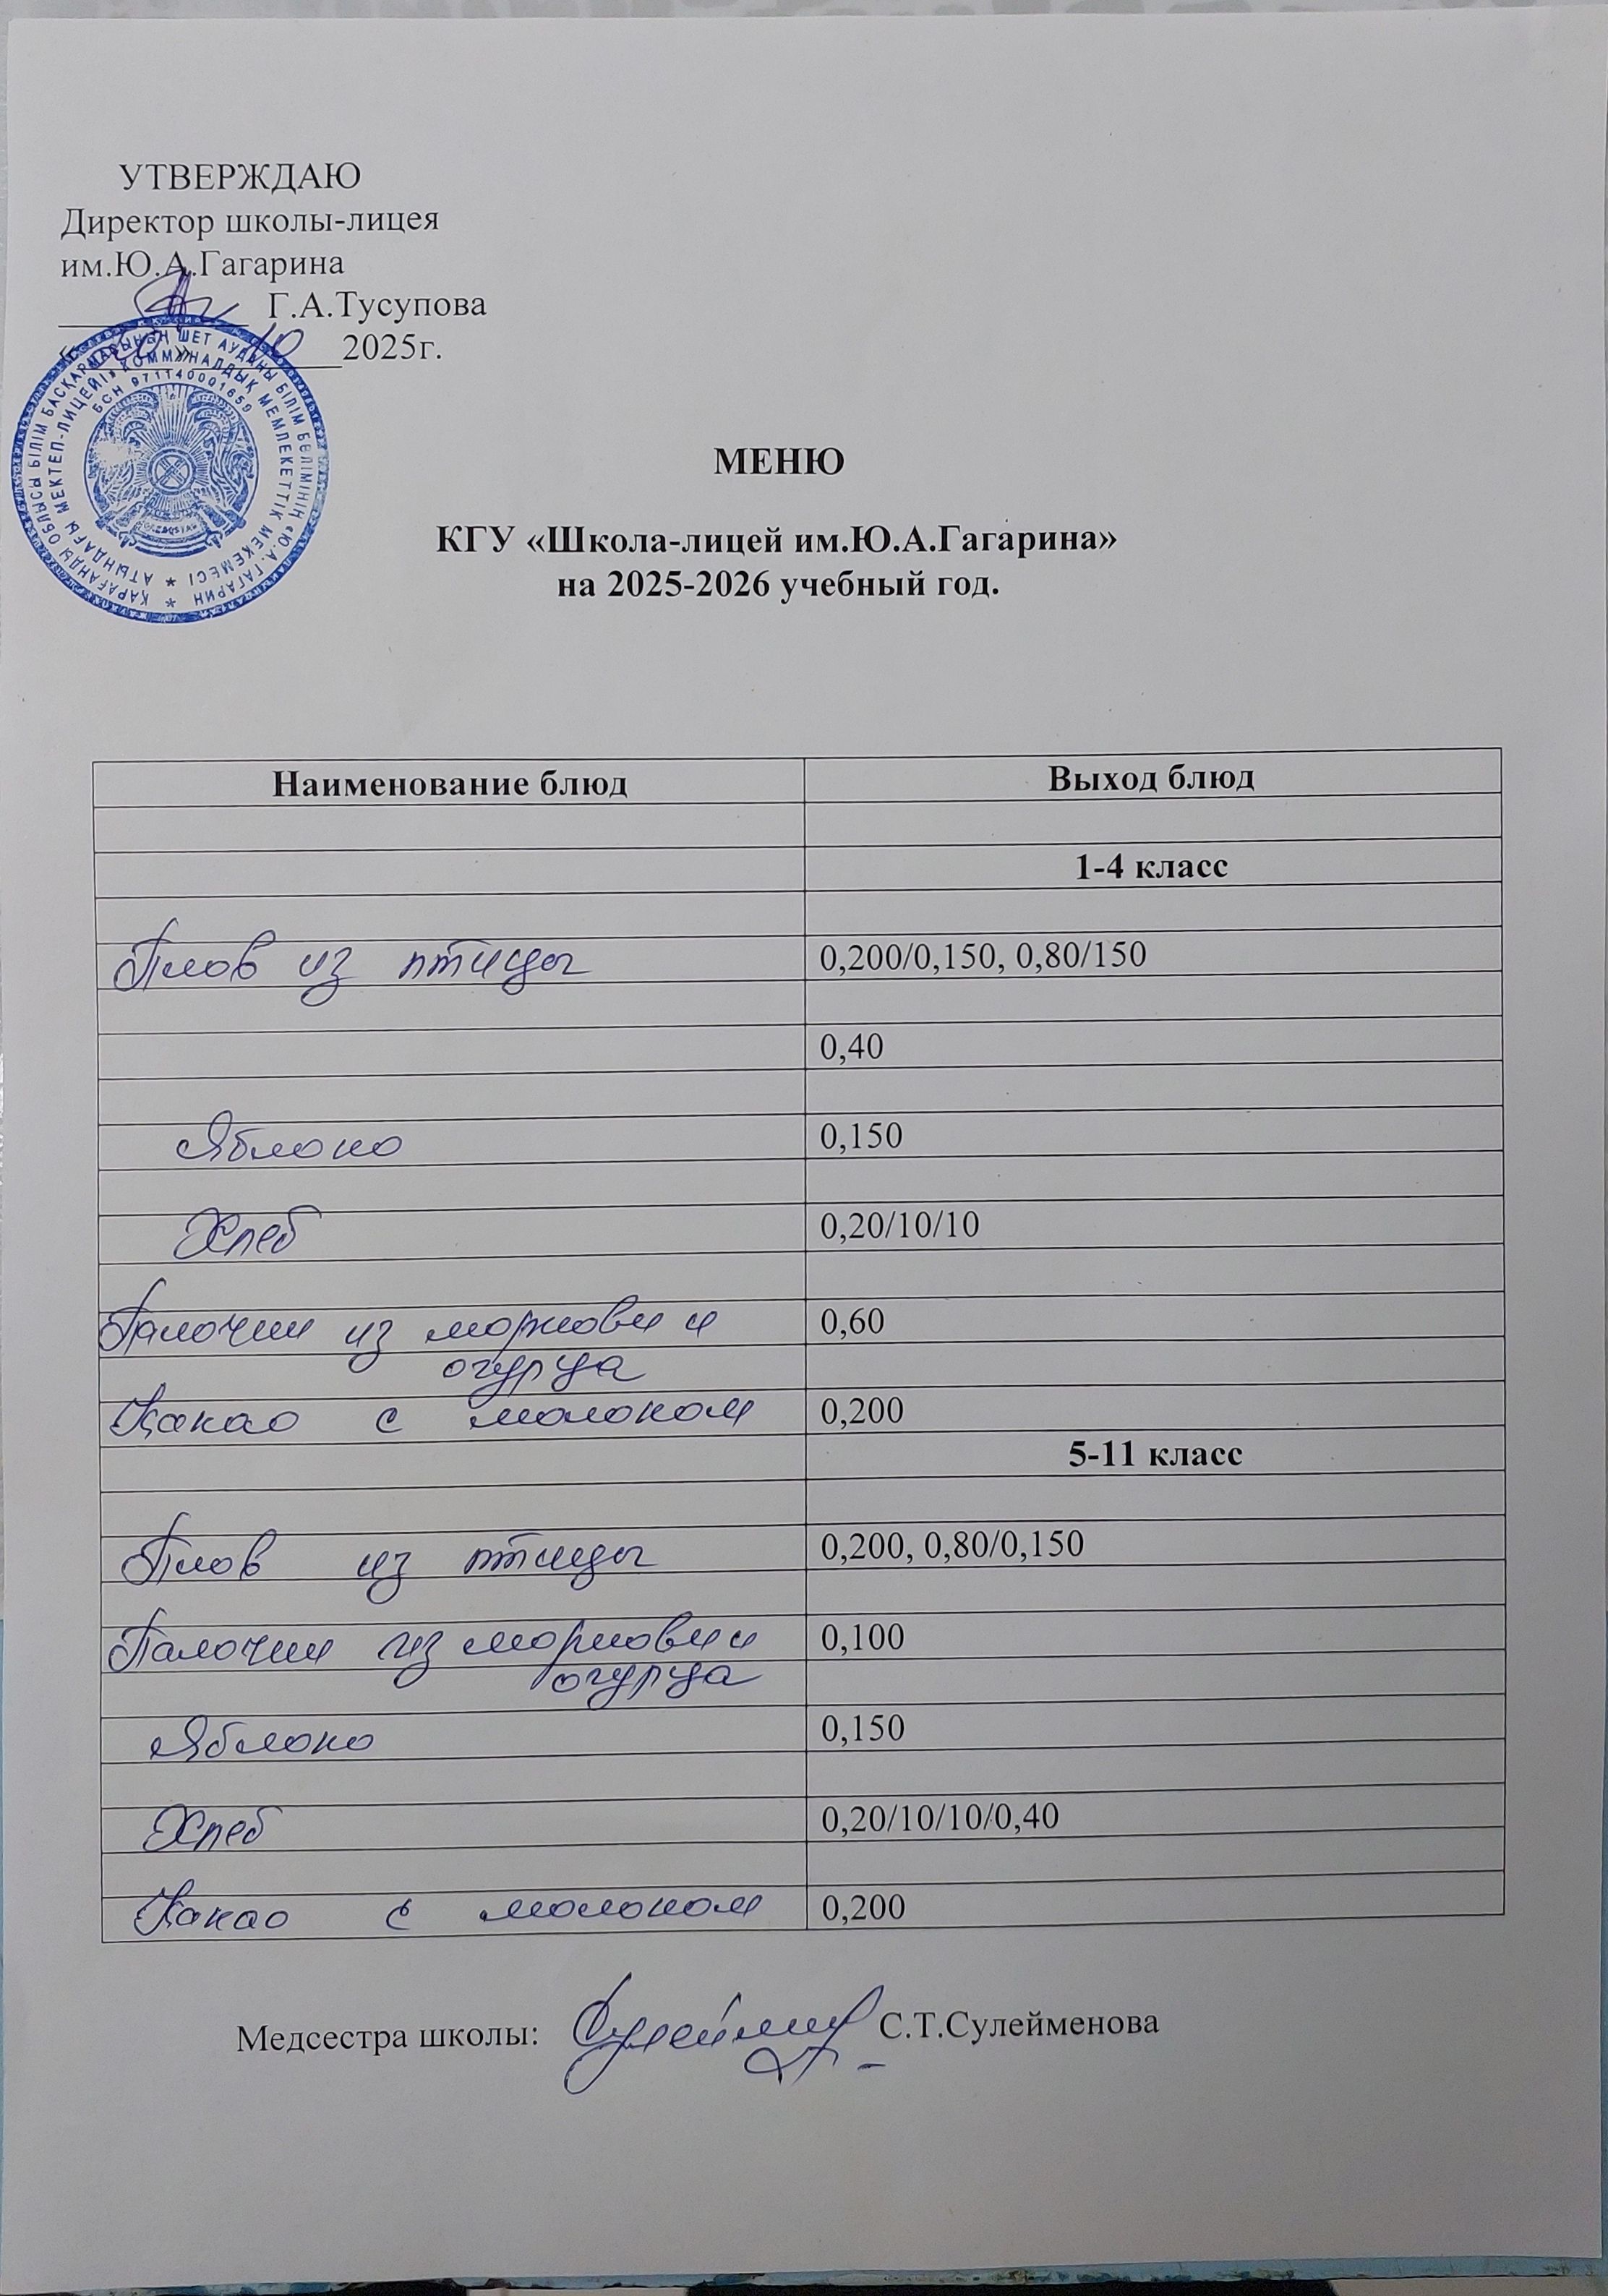 УТВЕРЖДАЮ
Директор школы-лицея
им.Ю.А.Гагарина
Г.А.Тусупова
» 10 2025г.
ҚАРАҒАНДЫ ОБЛЫСЫ БІЛІМ БАСҚАРМАСЫНЫҢ ШЕТ АУДАНЫ БІЛІМ БӨЛІМІНІҢ «Ю.А. ГАГАРИН
АТЫНДАҒЫ МЕКТЕП-ЛИЦЕЙІ» КОММУНАЛДЫҚ МЕМЛЕКЕТТІК МЕКЕМЕСІ
БСН 971140001659
МЕНЮ
КГУ «Школа-лицей им.Ю.А.Гагарина»
на 2025-2026 учебный год.
Наименование блюд Выход блюд
1-4 класс
Плов из птицы 0,200/0,150, 0,80/150
0,40
Яблоко 0,150
Хлеб 0,20/10/10
Палочки из моркови и 0,60
огурца
Какао с молоком 0,200
5-11 класс
Плов из птицы 0,200, 0,80/0,150
Палочки из моркови и 0,100
огурца
Яблоко 0,150
Хлеб 0,20/10/10/0,40
Какао с молоком 0,200
Медсестра школы: С.Т.Сулейменова